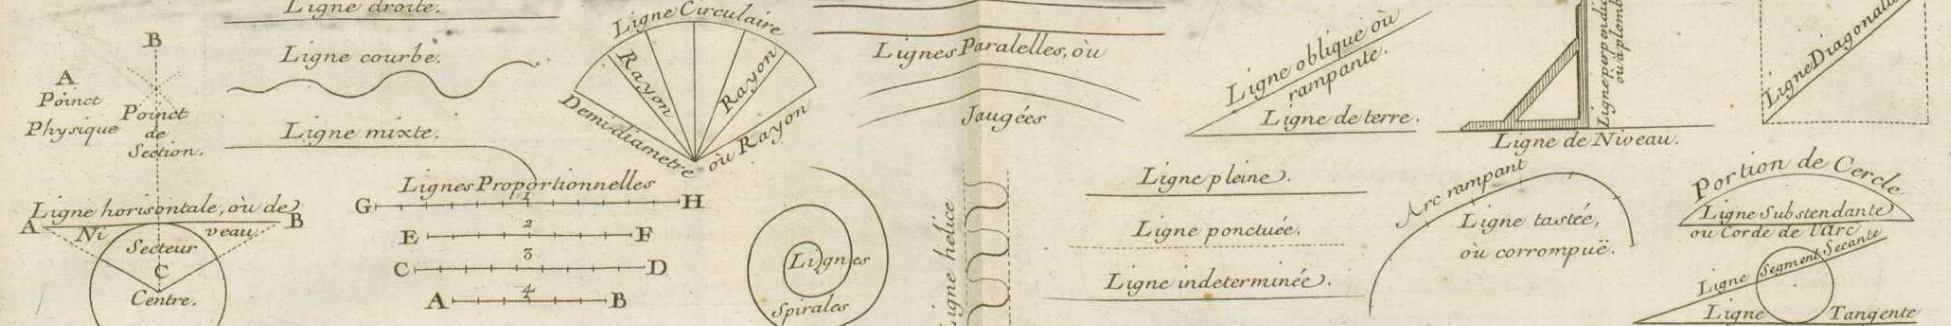 Ligne droite.
Ligne courbe.
Ligne mixte.
B
A
Poinct
Physique
Poinct
de
Section.
Ligne horisontale, où de
A
Ni
veau
B
Secteur
C
Centre.
Ligne Circulaire
Rayon
Rayon
Demi-diametre
où Rayon
Lignes Proportionnelles
G
1
H
E
2
F
C
3
D
A
4
B
Lignes
Spirales
Lignes Paralelles, où
Jaugées
Ligne helice
Ligne oblique où
rampante.
Ligne de terre.
Ligne pleine.
Ligne ponctuée.
Ligne indeterminée.
où aplomb
Ligne de Niveau.
Arc rampant
Ligne tastée,
où corrompuë.
Ligne Diagonale
Portion de Cercle
Ligne Substendante
ou Corde de l'Arc
Ligne
Segment
Secante
Ligne
Tangente